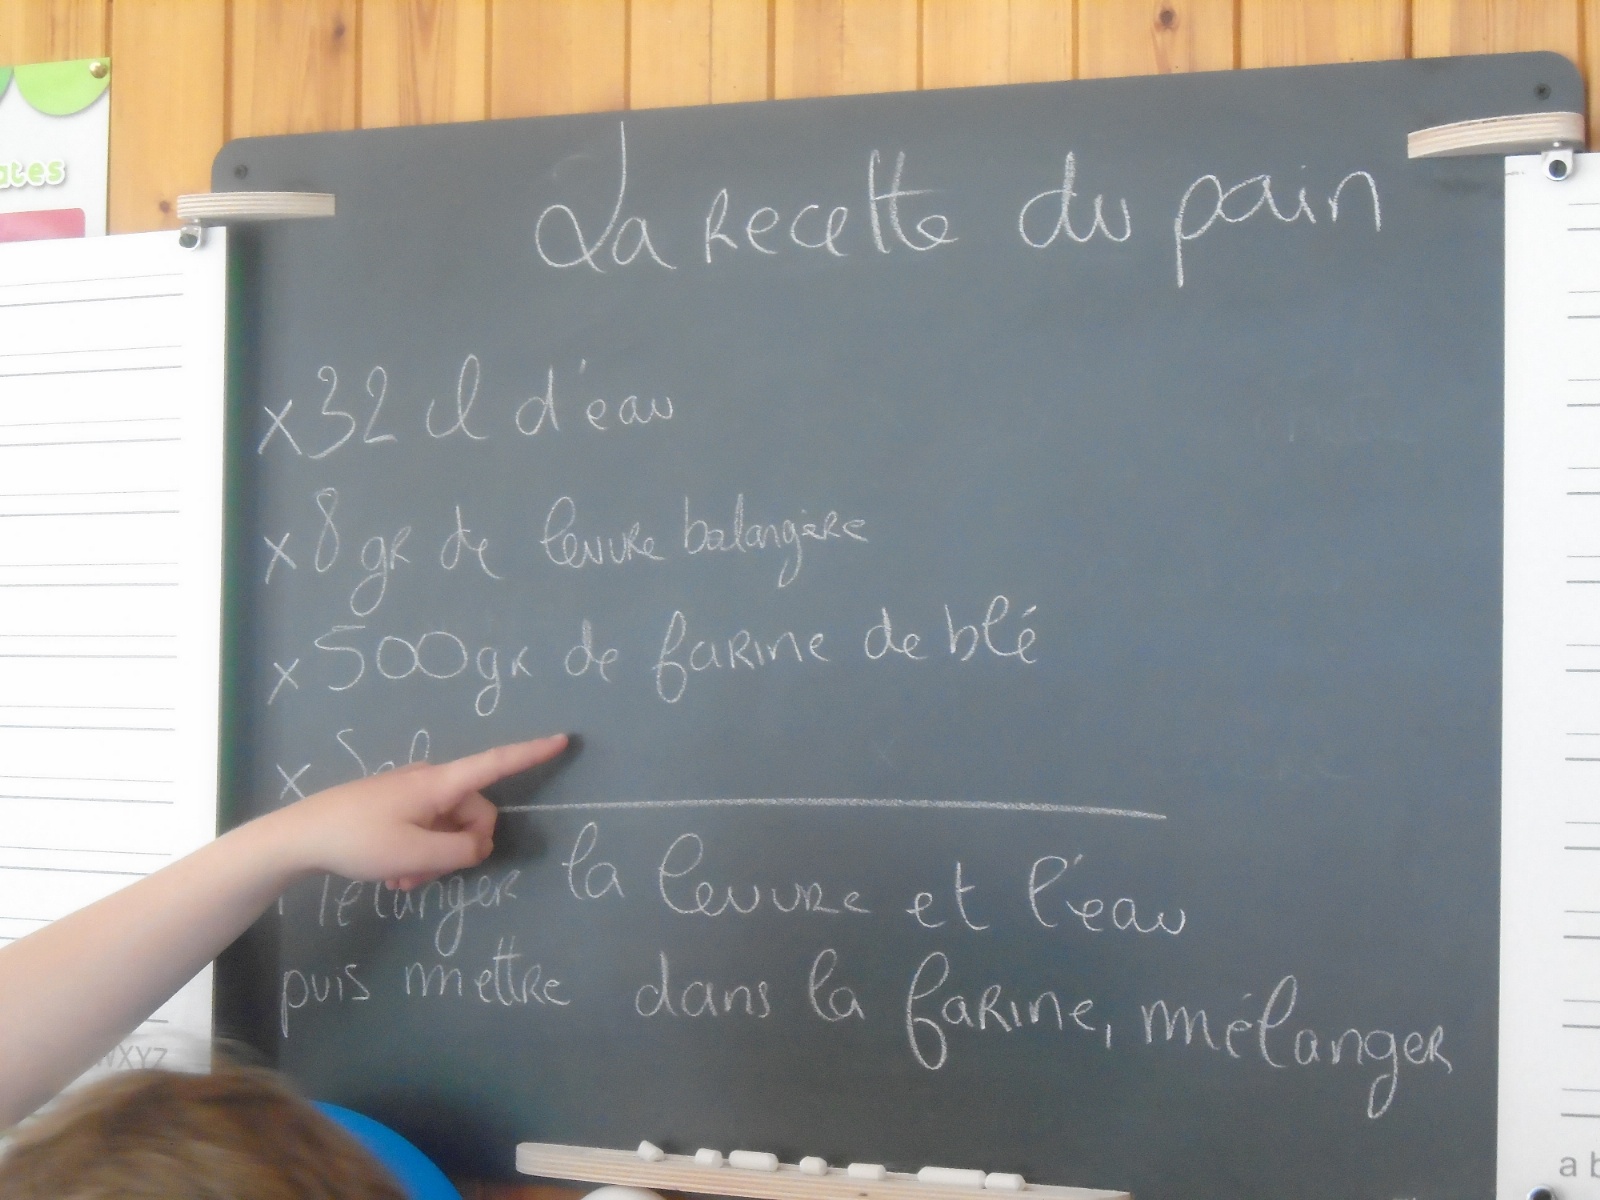 ates
La recette du pain
x 32 cl d'eau
x 8 gr de levure bolangère
x 500 gr de farine de blé
x Sel
Mélanger la levure et l'eau
puis mettre dans la farine, mélanger
WXYZ
a b